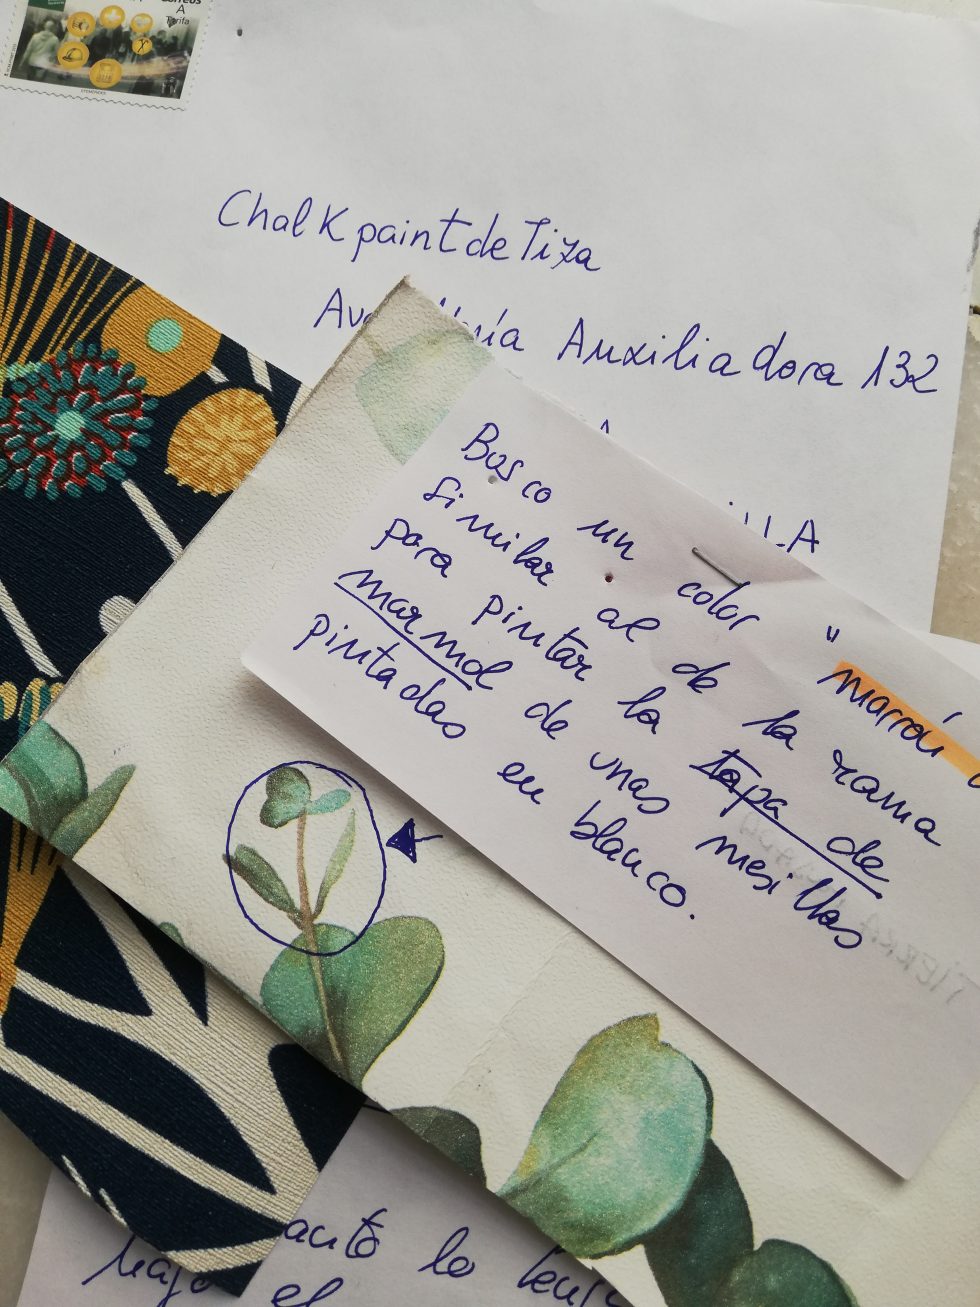 Correos
A
Tarifa
Chalkpaint de Tiza
María Auxiliadora 132
LLA
Busco un color "marrón
similar al de la rama
para pintar la tapa de
marmol de unas mesillas
pintadas en blanco.
TIERRA
lo
el